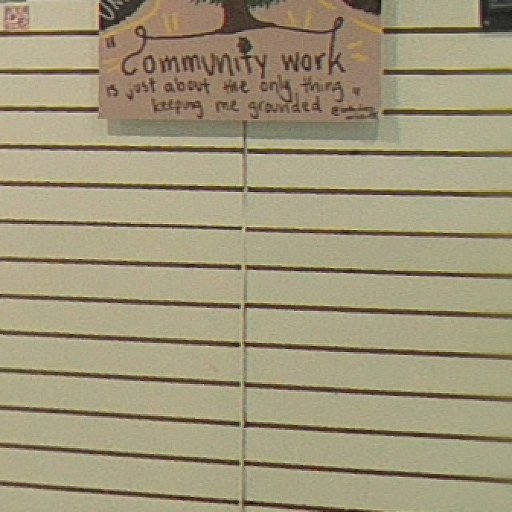 "Community work
is just about the only thing
keeping me grounded"